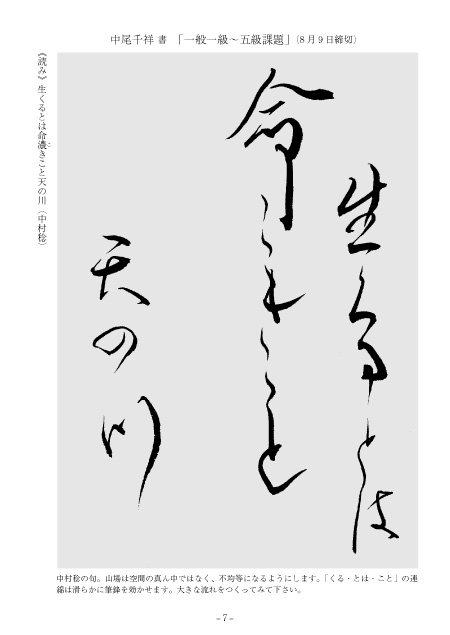 中尾千祥 書 「一般一級～五級課題」（8月9日締切）
《読み》生くるとは命濃きこと天の川（中村稔）
こ
生くるとは
命こきこと
天の川
中村稔の句。山場は空間の真ん中ではなく、不均等になるようにします。「くる・とは・こと」の連
綿は滑らかに筆鋒を効かせます。大きな流れをつくってみて下さい。
- 7 -